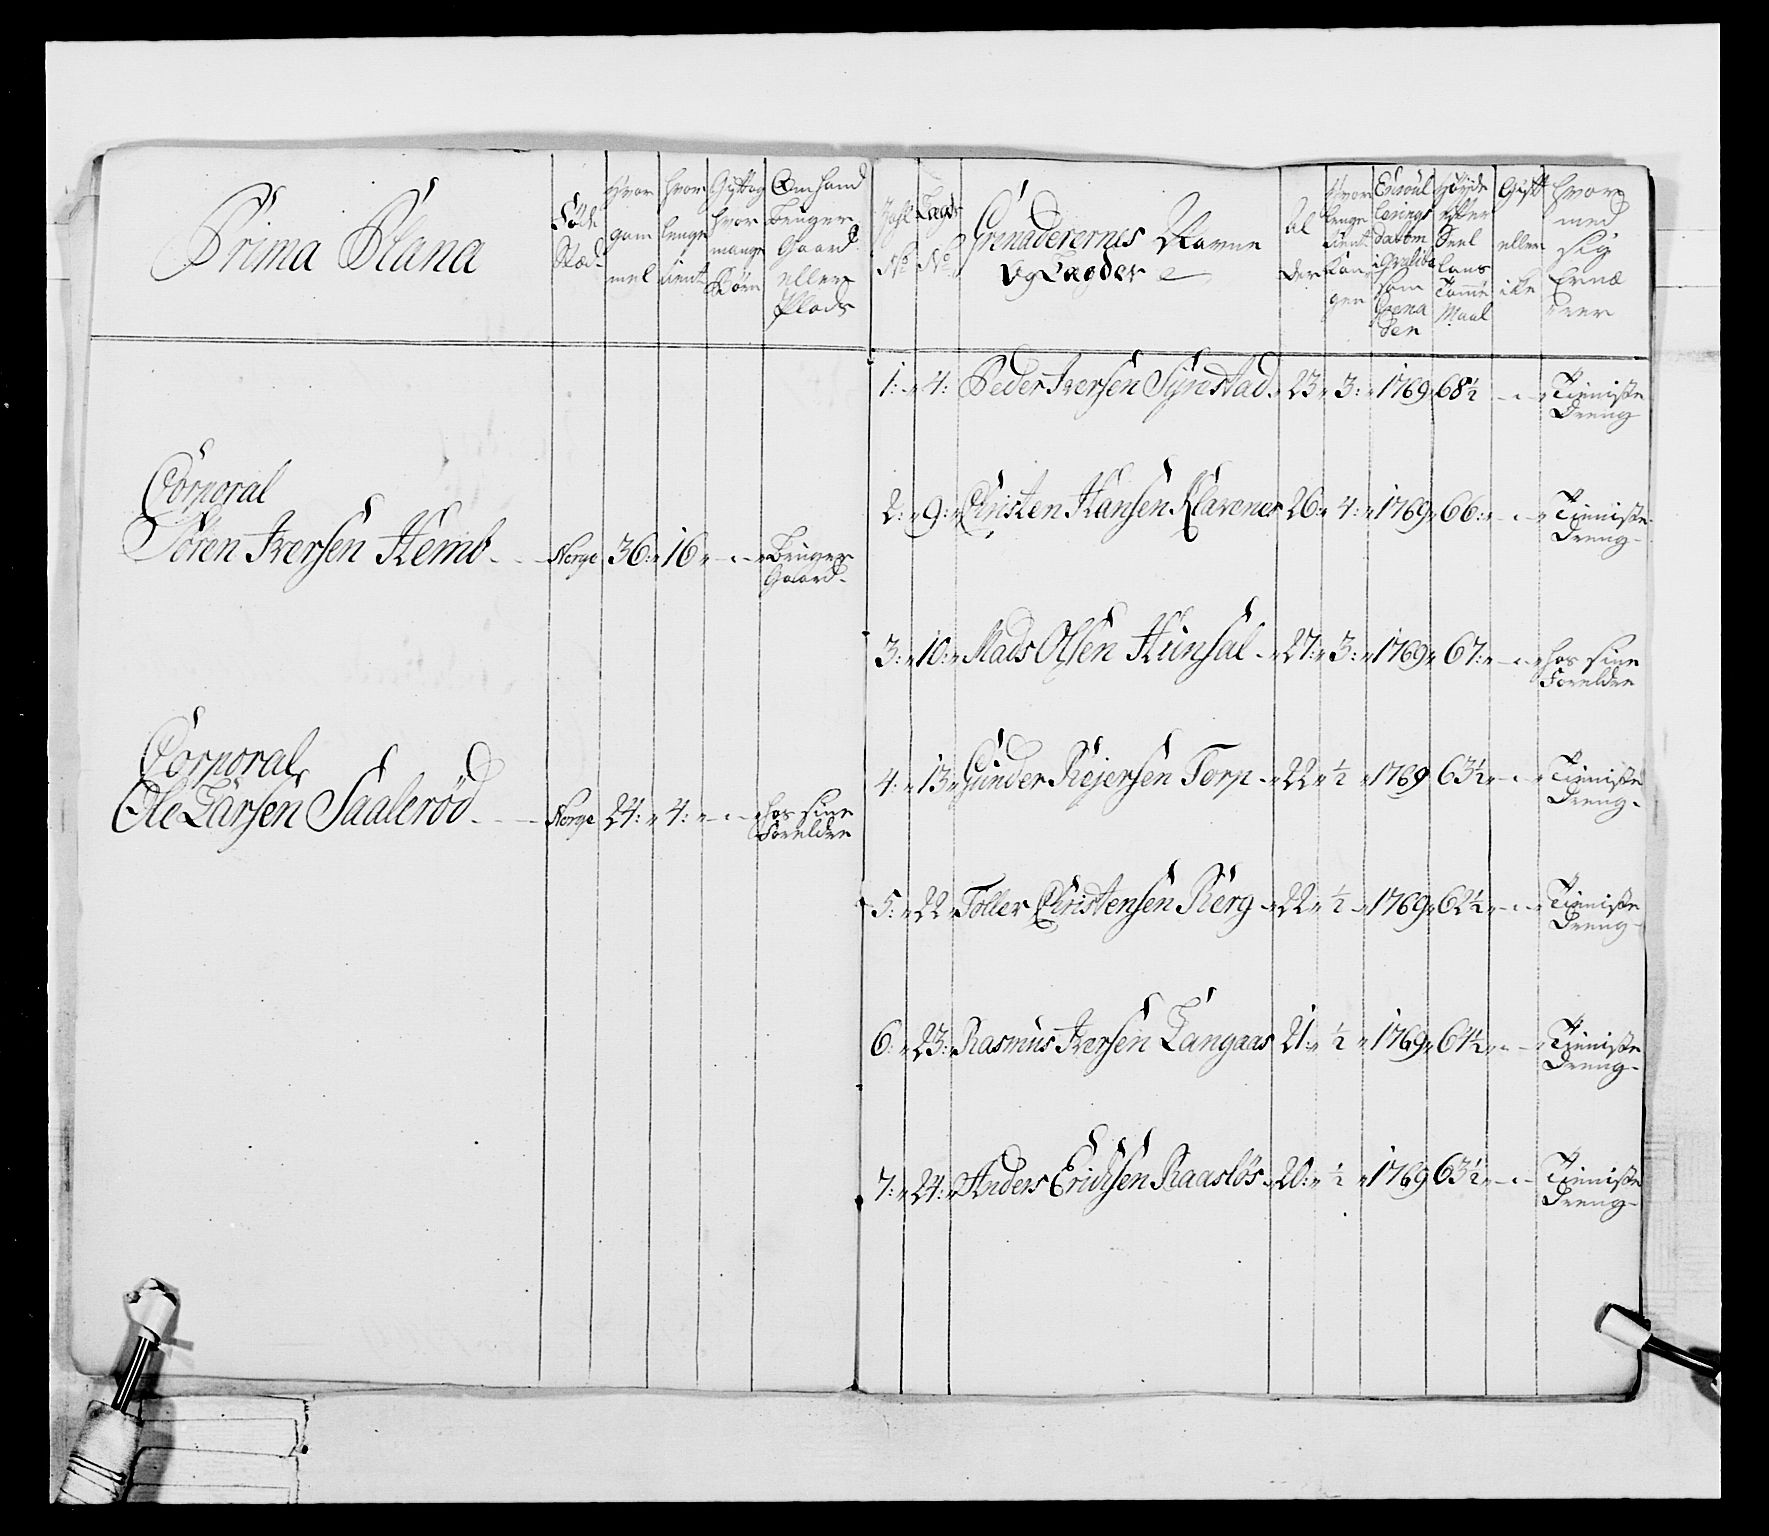 Prima Plana
Føde
Stæd
Hvor
gam
mel
hvor
lenge
tient
Gift og
hvor
mange
Børn
Om hand
bruger
Gaard
eller
Plads
Corporal
Sören Iversen Hemb - - Norge 36 16 - - Bruger
Gaard
Corporal
Ole Larsen Saalerød - - Norge 24 4 - - hos sine
Foreldre
No
Lægds
No
Grenaderernes Navne
og Lægder
Al
der
Hvor
lenge
tient
Kon
gen
som
Grena
deer
Høyde
efter
Seel
lans
Tomme
Maal
Gift
eller
ike
hvor
med
sig
Ernæ
rer
1: 4: Peder Iversen Synstad 23 3: 1769 68½ - Tieniste
Dreng
2: 9: Christen Hansen Klavenes 26 4: 1769 66: - Tieniste
Dreng
3: 10: Mads Olsen Hunsal 27: 3: 1769 67: - hos sine
Foreldre
4: 13 Gunder Rejersen Torp 22 ½ 1769 63½ - Tieniste
Dreng
5: 22 Toller Christensen Berg 22 ½ 1769 62½ - Tieniste
Dreng
6: 23: Rasmus Iversen Langaas 21: ½ 1769 61½ - Tieniste
Dreng
7: 24: Anders Erichsen Raasløs 20: ½ 1769 63½ - Tieniste
Dreng